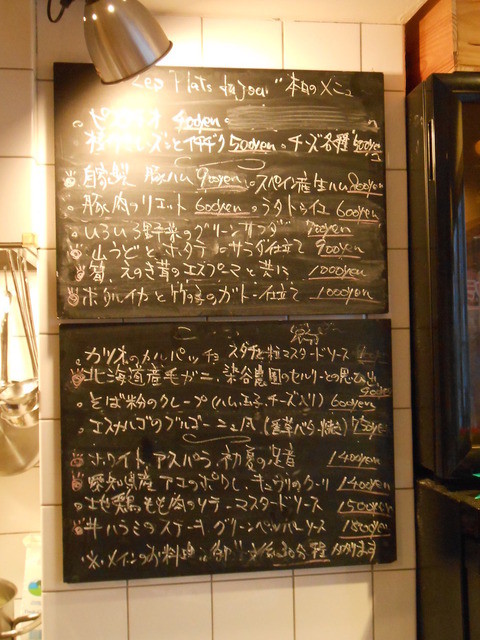 Les Plats du jour 本日のメニュ
400yen
枝付レーズンとイチヂク 500yen 。チーズ各種 500yen
自家製 豚ハム 900yen 。スペイン産生ハム 800yen
。豚肉のリエット 600yen 。ラタトゥイユ 600yen
いろいろ野菜のグリーンサラダ 900yen
山うどとホタテのサラダ仕立て 900yen
えのき茸のエスプーマと共に 1000yen
ホタルイカと竹の子のガトー仕立て 1000yen
。カツオのカルパッチョ スダチと粒マスタードソース
北海道産毛ガニ、染谷農園のセルリーとの思ひ出
。そば粉のクレープ(ハム、玉子、チーズ入り) 600yen
。エスカルゴのブルゴーニュ風 (香草バター焼き) 750yen
ホワイトアスパラ、初夏の定番 1400yen
愛知県産 アコのポワレ 1400yen
地鶏もも肉のソテー マスタードソース 1500yen
牛ハラミのステーキ グリーンペッパーソース 1800yen
※メインのお料理は